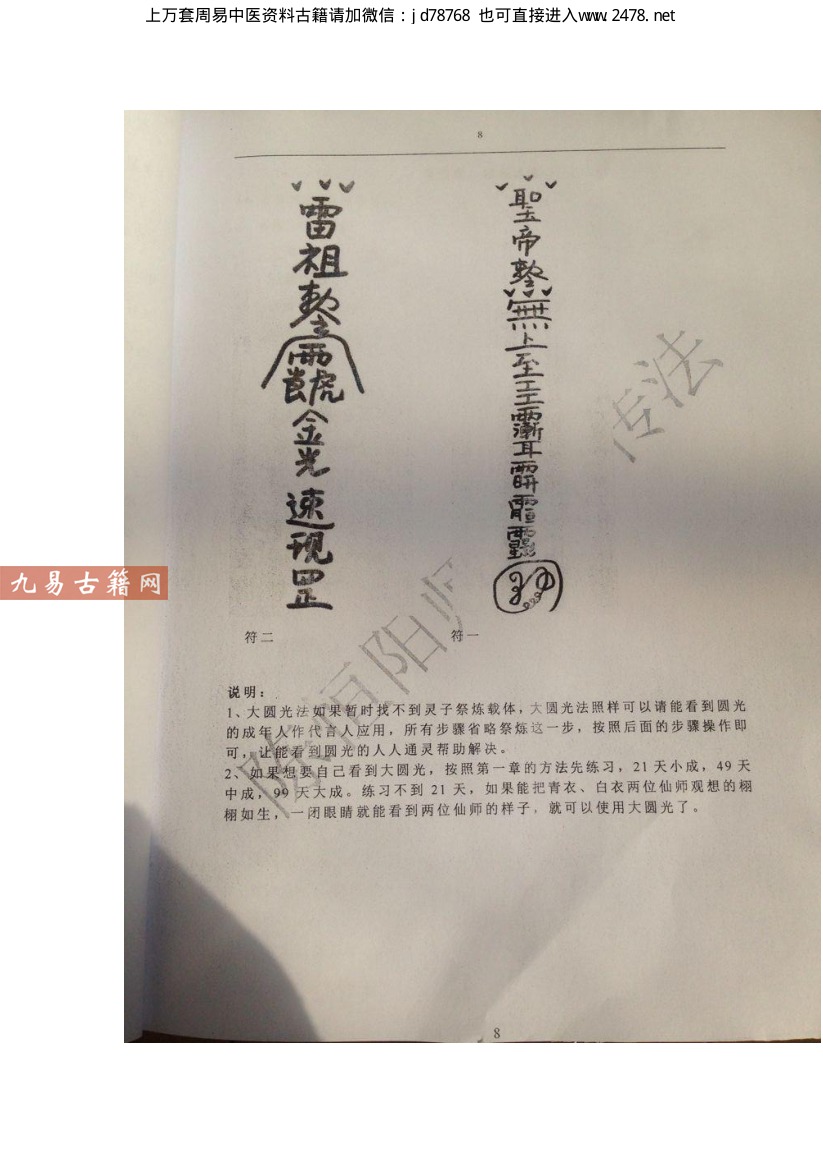 上万套周易中医资料古籍请加微信：jd78768 也可直接进入www.2478.net
8
雷祖敕
金光速现罡
聖帝敕
無上至
耳
九易古籍网
符二
符一
陈恒阳师
传法
说明：
1、大圆光法如果暂时找不到灵子祭炼载体，大圆光法照样可以请能看到圆光
的成年人作代言人应用，所有步骤省略祭炼这一步，按照后面的步骤操作即
可，让能看到圆光的人人通灵帮助解决。
2、如果想要自己看到大圆光，按照第一章的方法先练习，21 天小成，49 天
中成，99 天大成。练习不到 21 天，如果能把青衣、白衣两位仙师观想的栩
栩如生，一闭眼睛就能看到两位仙师的样子，就可以使用大圆光了。
8